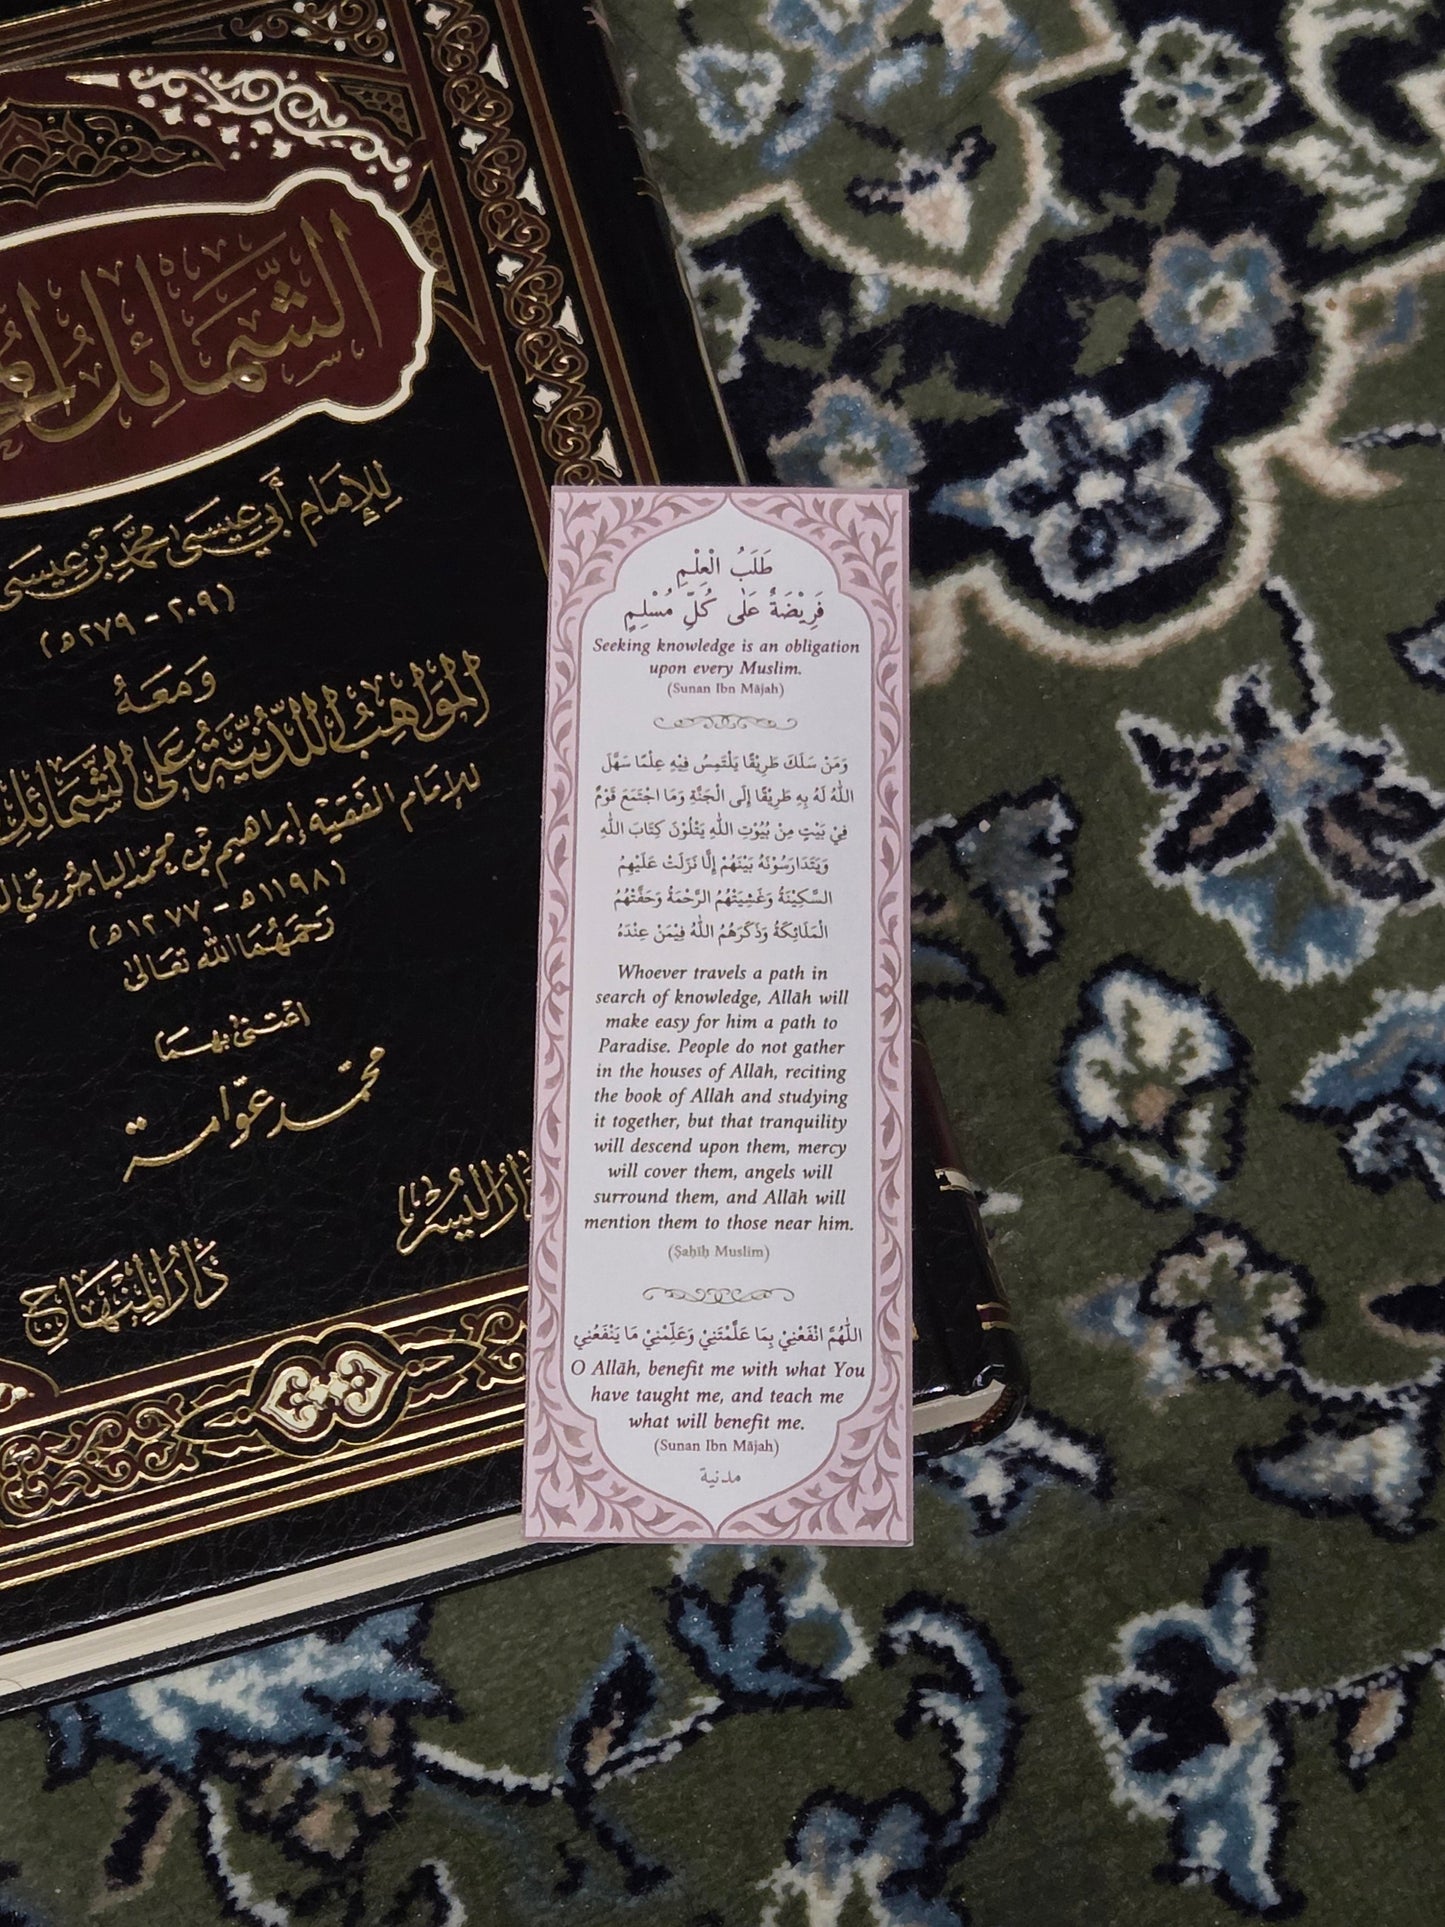 الشَّمَائِلُ
لِلإِمَامِ أَبِي عِيسَى مُحَمَّدِ بْنِ عِيسَى
(٢٠٩ - ٢٧٩هـ)
وَمَعَهُ
المَوَاهِبُ اللَّدُنِّيَّةُ عَلَى الشَّمَائِلِ
للإمَام الفَقيْه إبراهيم بن محمّد الباجوريّ
(١١٩٨هـ - ١٢٧٧هـ)
رَحِمَهُمَا الله تعَالىٰ
اعْتنىٰ بهِمَا
محمّد عوّامة
دَارُ اليُسْر
دَارُ المِنْهَاج
طَلَبُ الْعِلْمِ
فَرِيْضَةٌ عَلٰى كُلِّ مُسْلِمٍ
Seeking knowledge is an obligation
upon every Muslim.
(Sunan Ibn Mājah)
وَمَنْ سَلَكَ طَرِيْقًا يَلْتَمِسُ فِيْهِ عِلْمًا سَهَّلَ
اللّٰهُ لَهُ بِهِ طَرِيْقًا إِلَى الْجَنَّةِ وَمَا اجْتَمَعَ قَوْمٌ
فِيْ بَيْتٍ مِنْ بُيُوْتِ اللّٰهِ يَتْلُوْنَ كِتَابَ اللّٰهِ
وَيَتَدَارَسُوْنَهُ بَيْنَهُمْ إِلَّا نَزَلَتْ عَلَيْهِمُ
السَّكِيْنَةُ وَغَشِيَتْهُمُ الرَّحْمَةُ وَحَفَّتْهُمُ
الْمَلَائِكَةُ وَذَكَرَهُمُ اللّٰهُ فِيْمَنْ عِنْدَهُ
Whoever travels a path in
search of knowledge, Allāh will
make easy for him a path to
Paradise. People do not gather
in the houses of Allāh, reciting
the book of Allāh and studying
it together, but that tranquility
will descend upon them, mercy
will cover them, angels will
surround them, and Allāh will
mention them to those near him.
(Ṣaḥīḥ Muslim)
اَللّٰهُمَّ انْفَعْنِيْ بِمَا عَلَّمْتَنِيْ وَعَلِّمْنِيْ مَا يَنْفَعُنِيْ
O Allāh, benefit me with what You
have taught me, and teach me
what will benefit me.
(Sunan Ibn Mājah)
مدنية